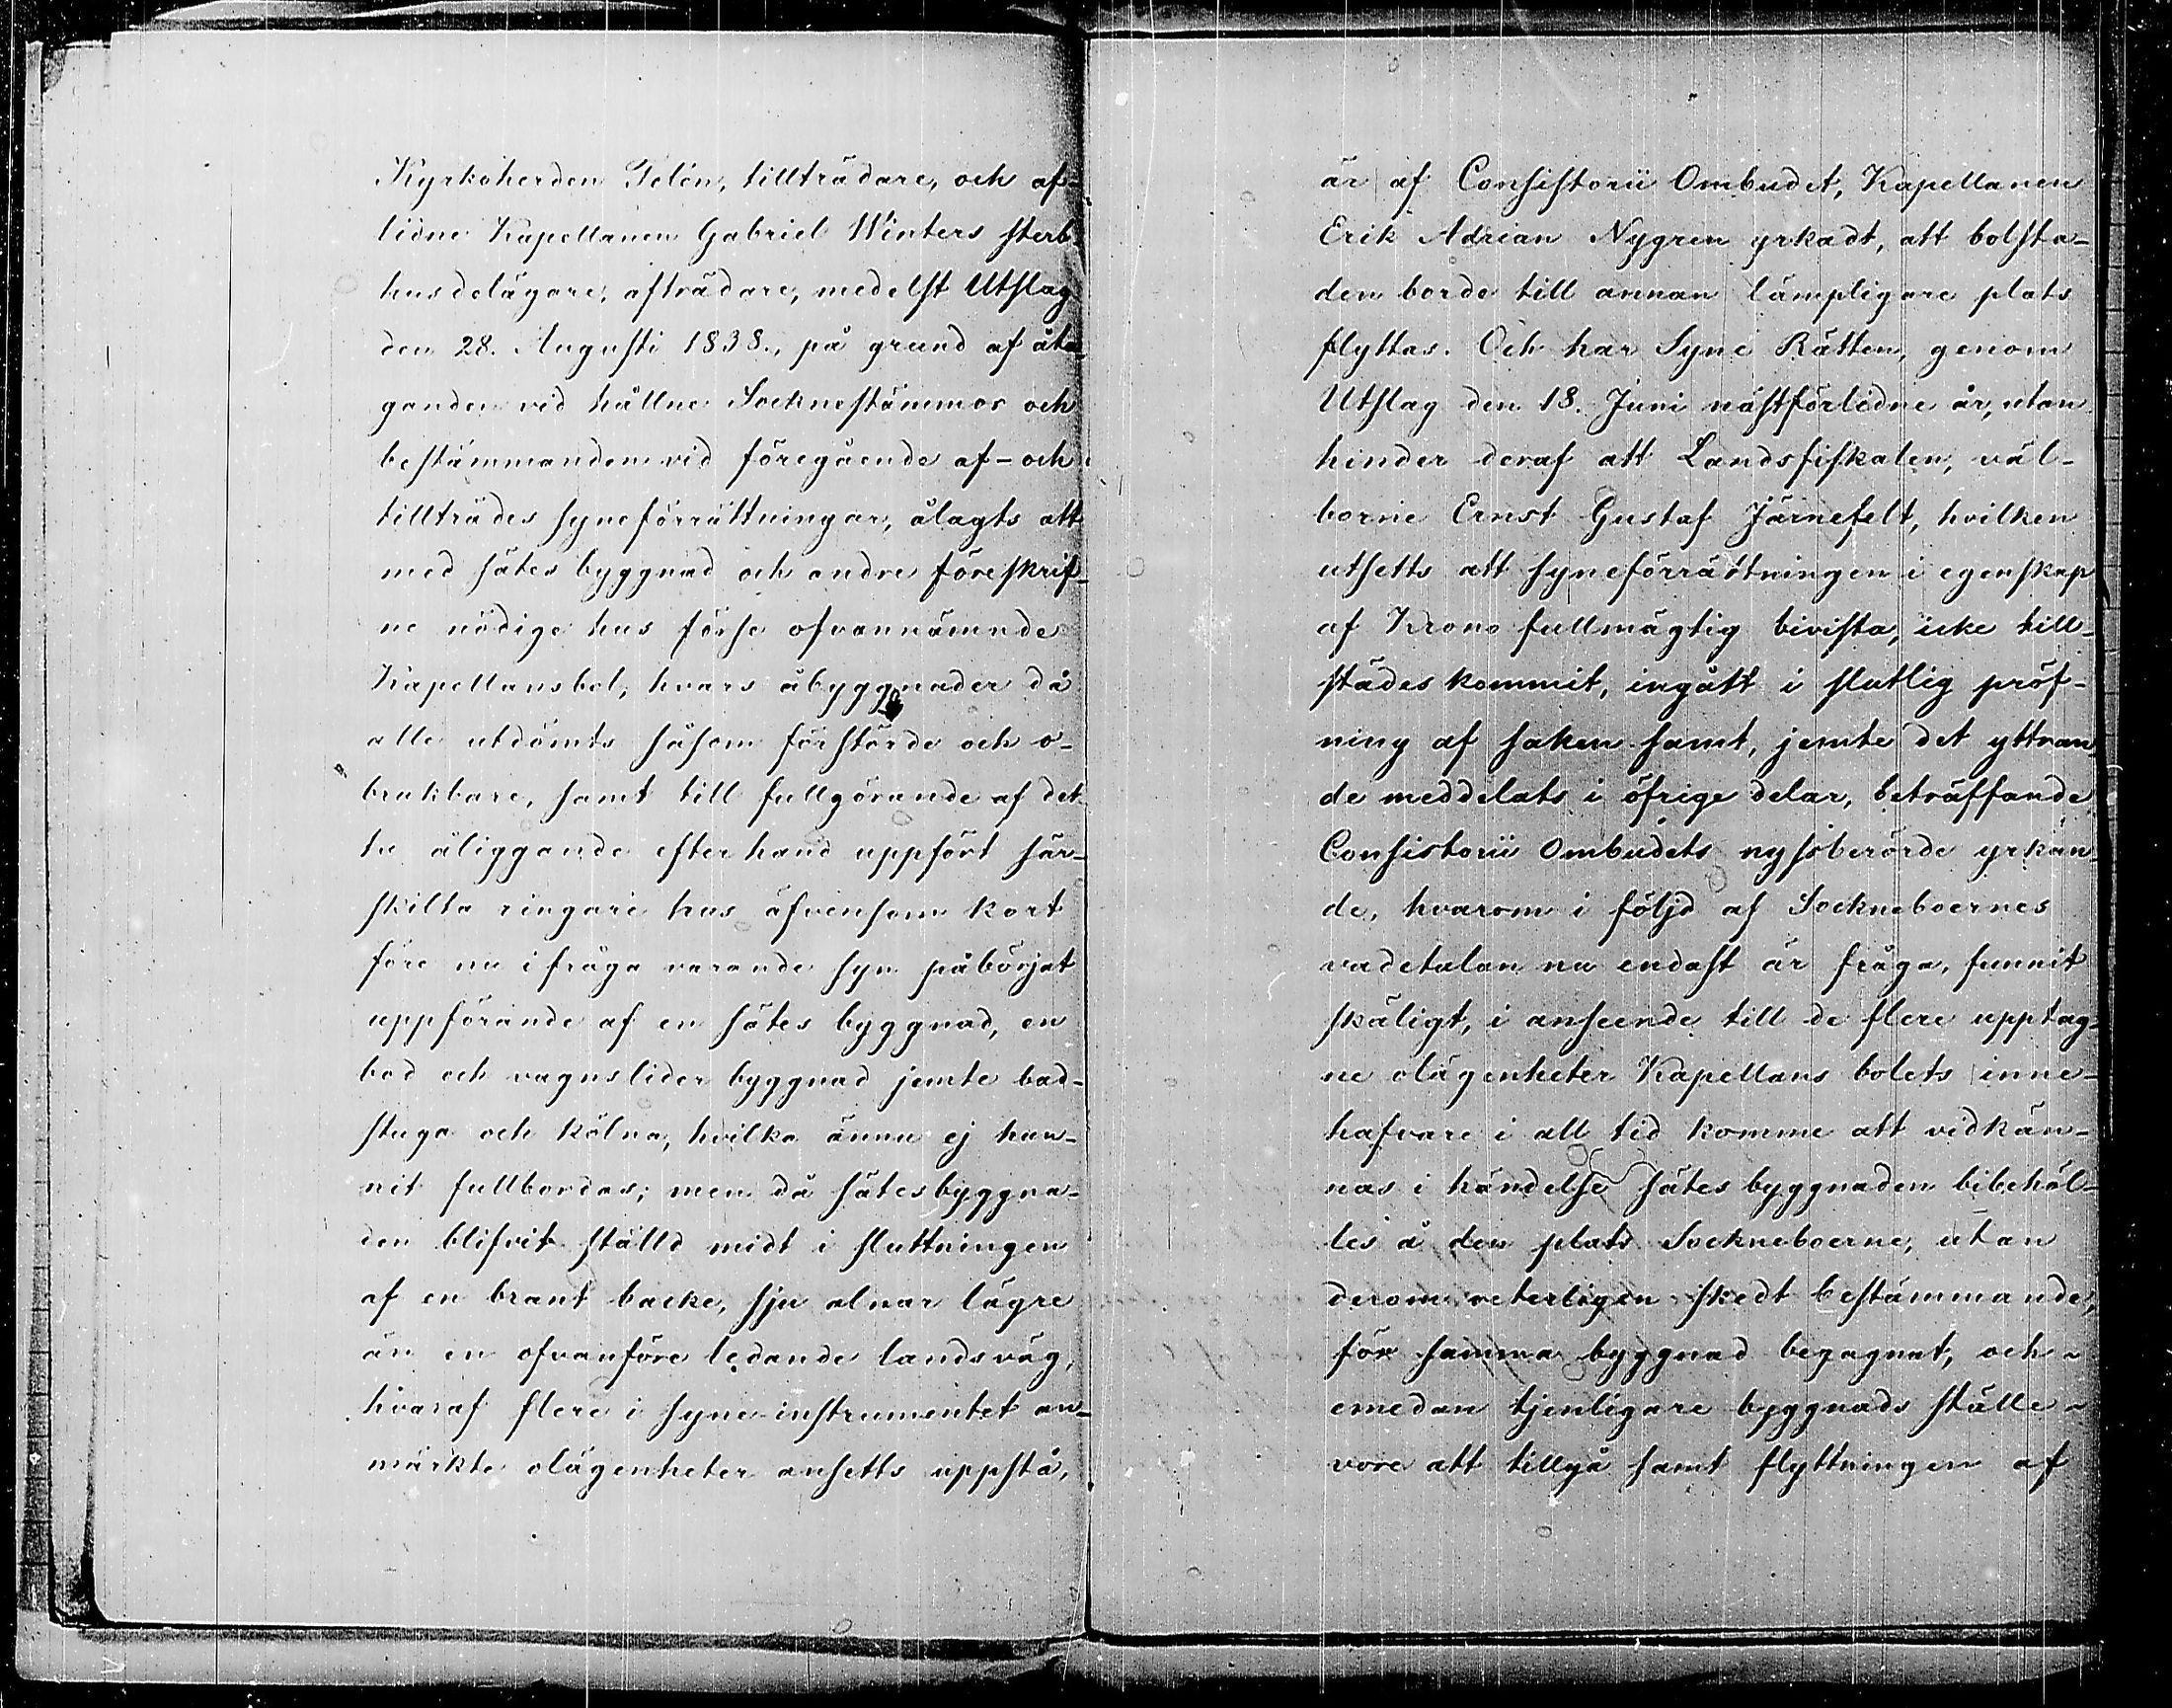 Kyrkoherden Telén, tillträdare, och af-
lidne Kapellanen Gabriel Winters sterb-
husdelägare, afträdare, medelst Utslag
den 28. Augusti 1838., på grund af åta-
ganden vid hållne Socknestämmor och
bestämmanden vid föregående af- och
tillträdes syneförrättningar, ålagts att
med sätes byggnad och andre föreskrif-
ne nödige hus förse ofvannämnde
Kapellansbol, hvars åbyggnader då
alle utdömts såsom förstörde och o-
brukbare, samt till fullgörande af det-
ta åliggande efterhand uppfört sär-
skilta ringare hus äfvensom kort
före nu ifråga varande syn påbörjat
uppförande af en sätes byggnad, en
bod och vagnslider byggnad jemte bad-
stuga och kölna, hvilka ännu ej hun-
nit fullbordas; men då sätesbyggna-
den blifvit ställd midt i sluttningen
af en brant backe, sju alnar lägre
än en ofvanföre ledande landsväg,
hvaraf flere i syne-instrumentet an-
märkte olägenheter ansetts uppstå,
är af Consistorii Ombudet, Kapellanen
Erik Adrian Nygren yrkadt, att bolsta-
den borde till annan lämpligare plats
flyttas. Och har Syne Rätten, genom
Utslag den 18. Juni nästförledne år, utan
hinder deraf att Landsfiskalen, väl-
borne Ernst Gustaf Järnefelt, hvilken
utsetts att syneförrättningen i egenskap
af Krono fullmägtig bivista, icke till-
städes kommit, ingått i slutlig pröf-
ning af saken samt, jemte det yttran-
de meddelats i öfrige delar, beträffande
Consistorii Ombudets nyssberörde yrkan-
de, hvarom i följd af Sockneboernes
vadetalan nu endast är fråga, funnit
skäligt, i anseende till de flere upptag-
ne olägenheter Kapellans bolets inne-
hafvare i all tid komme att vidkän-
nas i händelse sätes byggnaden bibehöl-
les å den plats Sockneboerne, utan
derom veterligen skedt bestämmande,
för samma byggnad begagnat, och
emedan tjenligare byggnads ställe
vore att tillgå samt flyttningen af